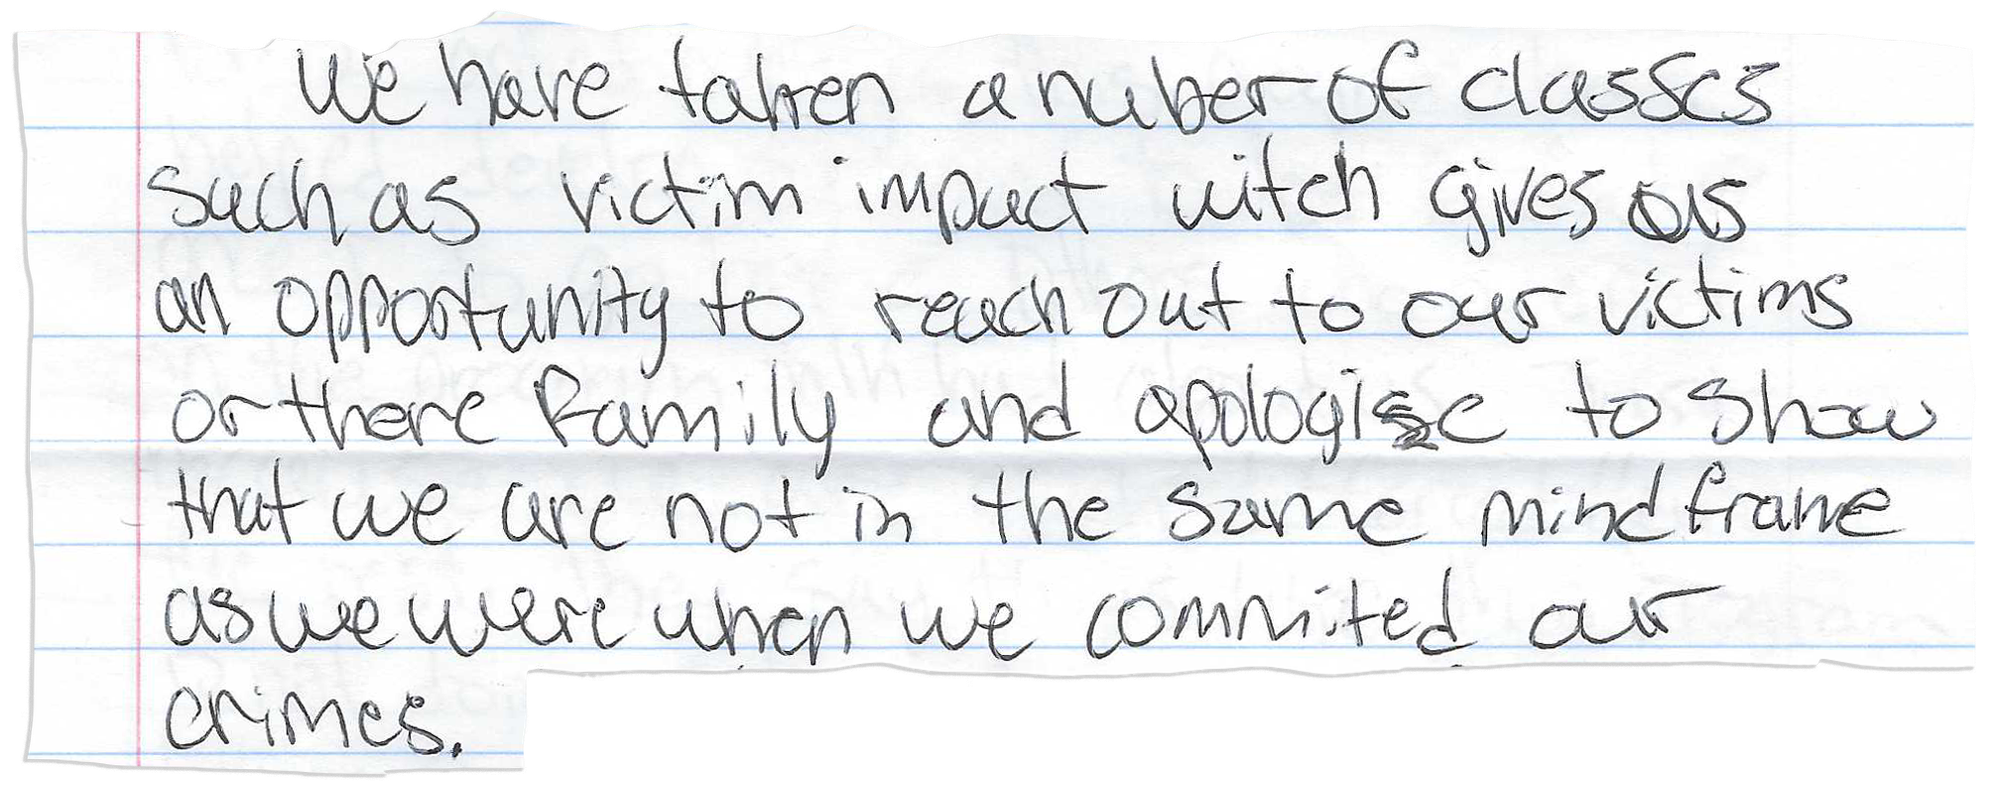 We have taken a nuber of classes
such as victim impact witch gives us
an opportunity to reach out to our victims
or there family and apologise to show
that we are not in the same mind frame
as we were when we commited our
crimes.